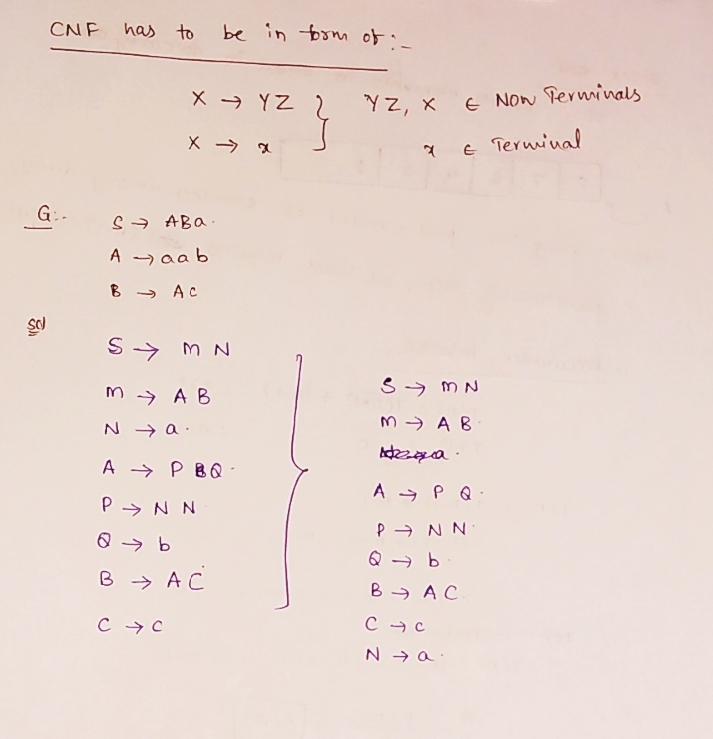 CNF has to be in form of :-
X → YZ } YZ, X ∈ Non Terminals
X → x x ∈ Terminal
G:-
S → ABa.
A → aab
B → AC
Sol
S → MN
M → AB
N → a.
A → PQ.
P → NN
Q → b
B → AC
C → c
S → MN
M → AB.
A → PQ.
P → NN
Q → b.
B → AC.
C → c
N → a.